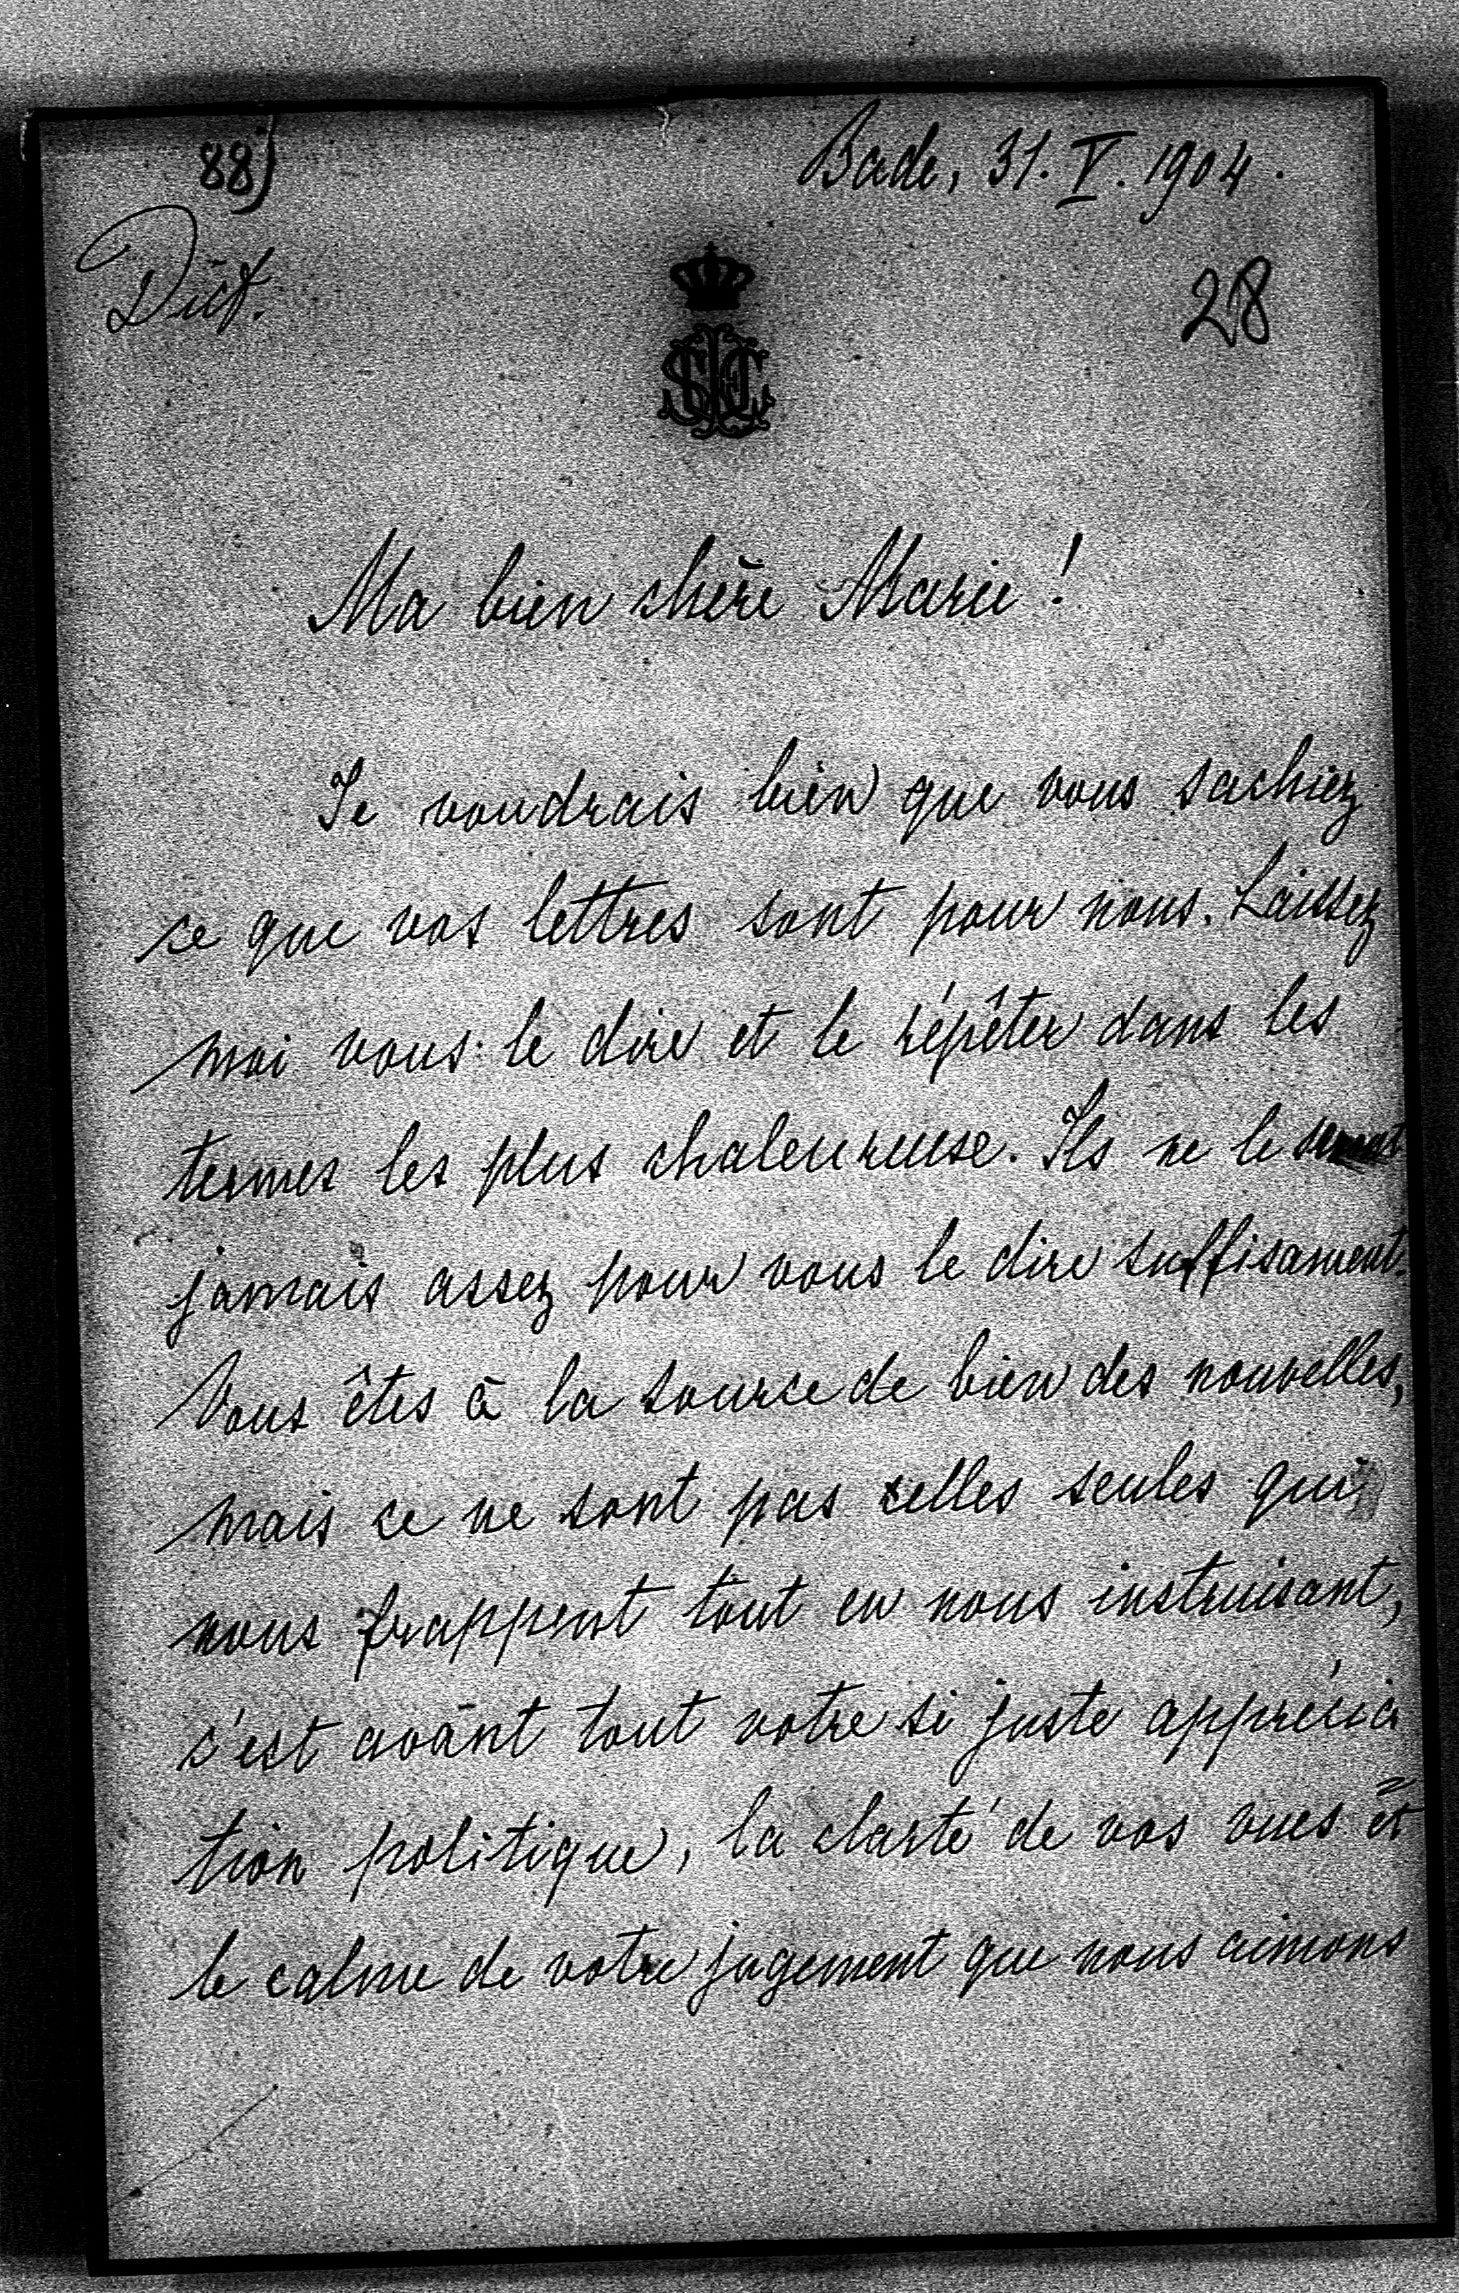 88)
Bade, 31. V. 1904.
Dict.
28
Ma bien chère Marie!
Je voudrais bien que vous sachiez
ce que vos lettres sont pour nous. Laissez
moi vous le dire et le répêter dans les
termes les plus chaleureuse. Ils ne le seront
jamais assez pour vous le dire suffisament.
Vous êtes à la source de bien des nouvelles,
mais ce ne sont pas celles seules qui
nous frappent tout en nous instruisant,
c'est avant tout votre si juste apprécia
tion politique, la clarté de vos vues et
le calme de votre jugement que nous aimons